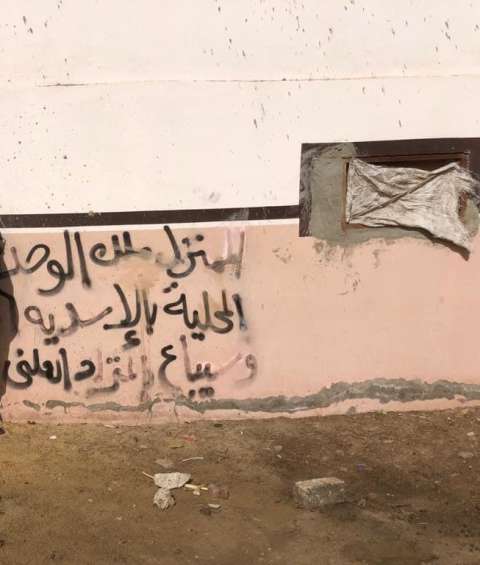 المنزل ملك الوحد
المحلية بالإسديه
وسيباع المزاد العلني